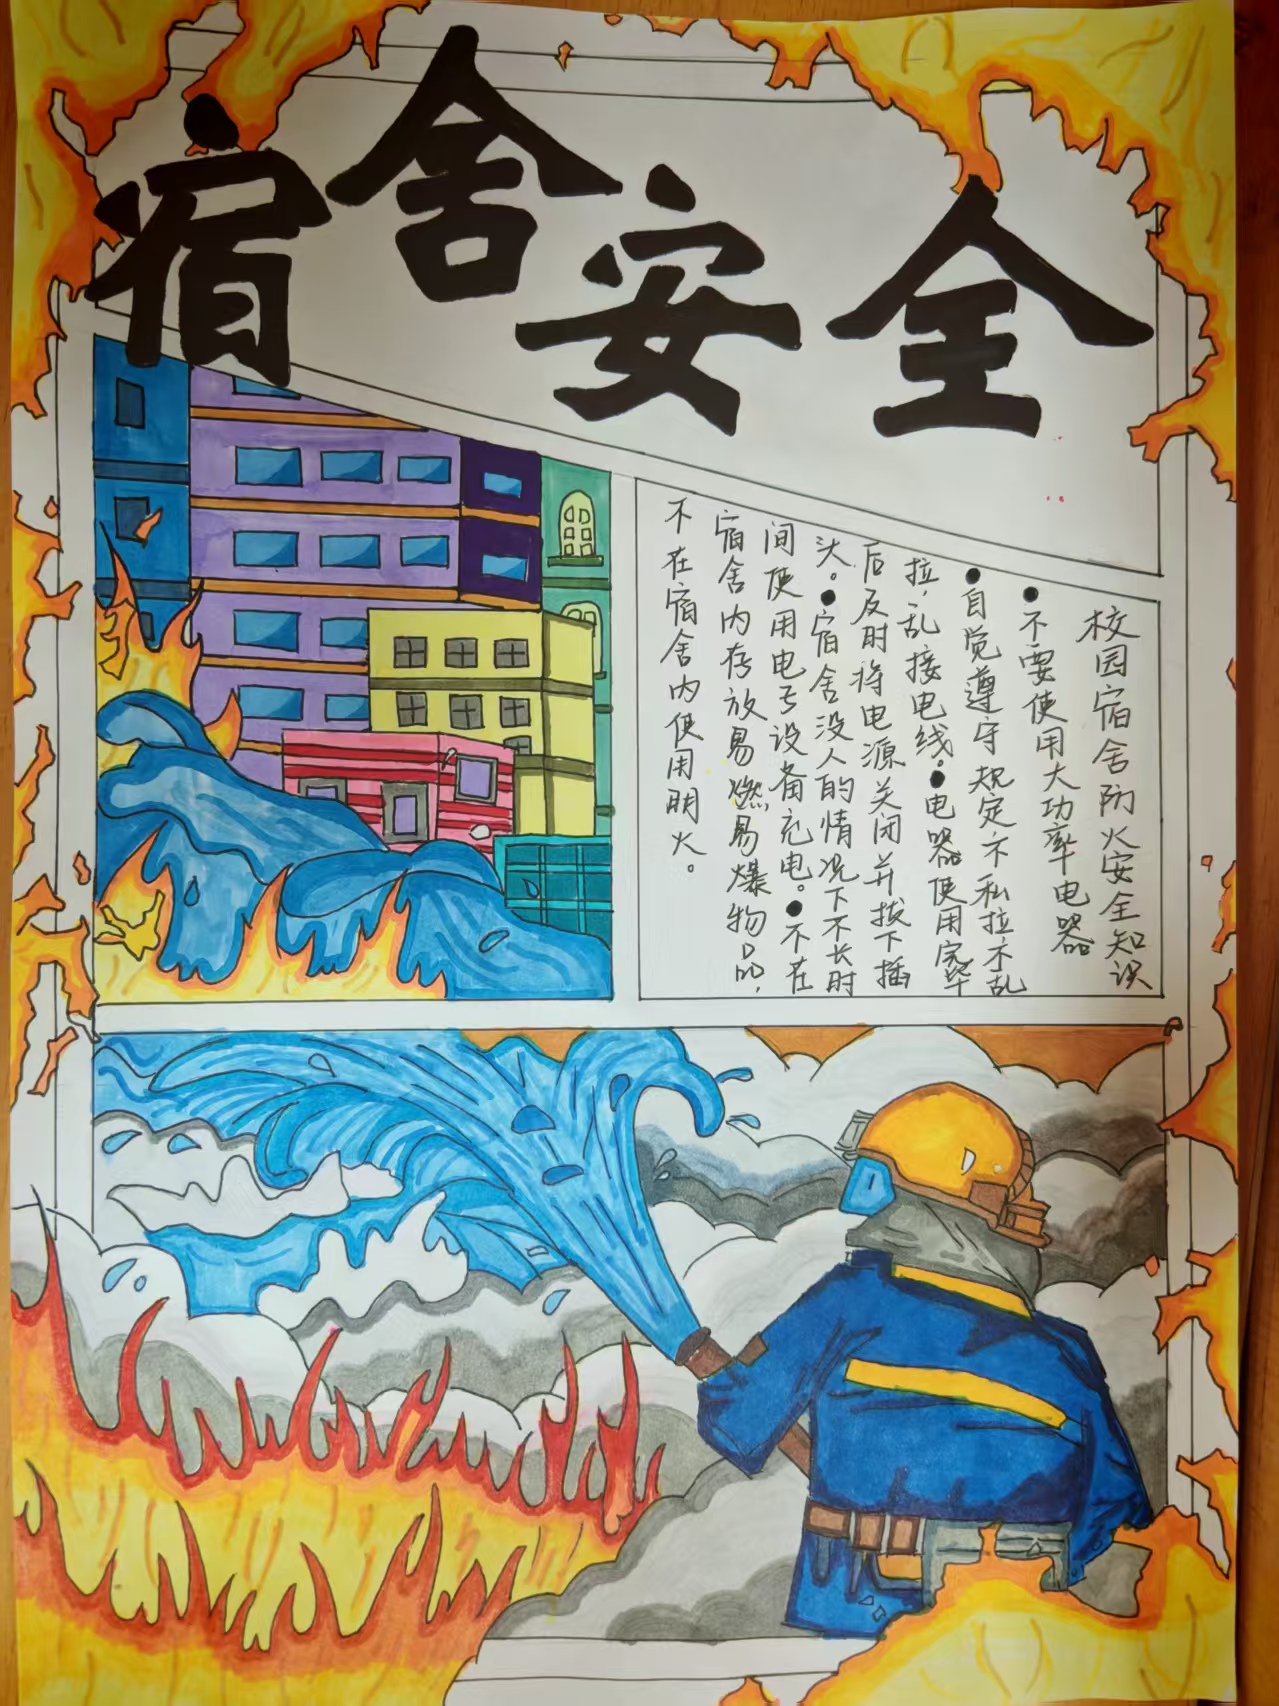 宿舍安全
校园宿舍防火安全知识
●不要使用大功率电器
●自觉遵守规定不私拉不乱
拉，乱接电线。●电器使用完毕
后及时将电源关闭并拔下插
头。●宿舍没人的情况下不长时
间使用电子设备充电。●不在
宿舍内存放易燃易爆物品，
不在宿舍内使用明火。